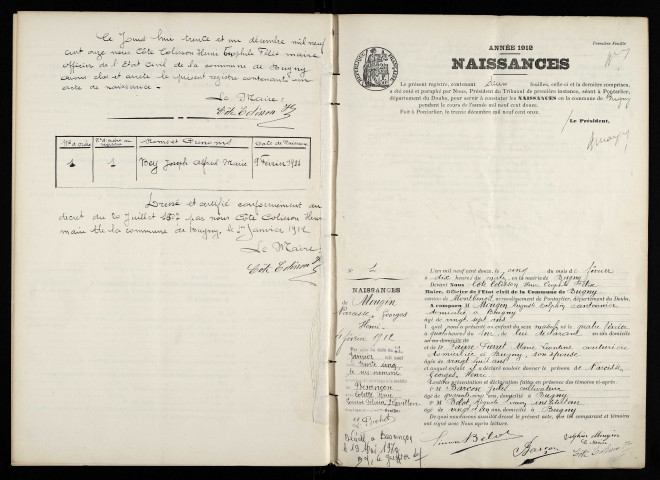 Ce jourd'hui trente et un décembre mil neuf
cent onze nous Côte Colisson Henri Théophile Félix maire
officier de l'Etat Civil de la commune de Bugny
avons clos et arrêté le présent registre contenant un
acte de naissance.
Le Maire
Côte Colisson
Noms et Prénoms
Date de Naissance
1 1 Bey Joseph Alfred Marie 9 Février 1911
Dressé et certifié conformément au
décret du 20 Juillet 1807 par nous Côte Colisson Henri
maire de la commune de Bugny, le 1er Janvier 1912
Le Maire
Côte Colisson
Première Feuille
ANNÉE 1912
NAISSANCES
Le présent registre, contenant feuilles, celle-ci et la dernière comprises,
a été coté et paraphé par Nous, Président du Tribunal de première instance, séant à Pontarlier,
département du Doubs, pour servir à constater les NAISSANCES en la commune de Bugny
pendant le cours de l'année mil neuf cent douze.
Fait à Pontarlier, le treize décembre mil neuf cent onze.
Le Président,
NAISSANCES
de Mougin
Narcisse Georges
Henri
4 février 1912
L'an mil neuf cent douze, le cinq du mois de février
à dix heures du matin, en la mairie de Bugny
Devant Nous Côte Colisson Henri Théophile Félix
Maire, Officier de l'Etat civil de la Commune de Bugny
canton de Montbenoit, arrondissement de Pontarlier, département du Doubs,
A comparu M Mougin Auguste Delphin cantonnier
domicilié à Bugny
âgé de vingt sept ans
lequel nous a présenté un enfant du sexe masculin né le quatre février
à quatre heures du soir, de lui déclarant en son domicile
et de Faivre Pierret Marie Léontine couturière
domiciliée à Bugny, son épouse
âgée de vingt huit ans
et auquel enfant il a déclaré vouloir donner le prénom de Narcisse
Georges Henri
Lesdites présentation et déclaration faites en présence des témoins ci-après :
1° M Barçon Jules cultivateur
âgé de quarante cinq ans, domicilié à Bugny
2° M Bélot Auguste Simon instituteur
âgé de vingt ans, domicilié à Bugny
De quoi nous avons aussitôt dressé le présent acte, que les comparant et témoins
ont signé avec Nous après lecture.
Simon Bélot
Barçon
Delphin Mougin
Côte Colisson
Besançon
Décédé à Besançon
le 19 Mai 1970